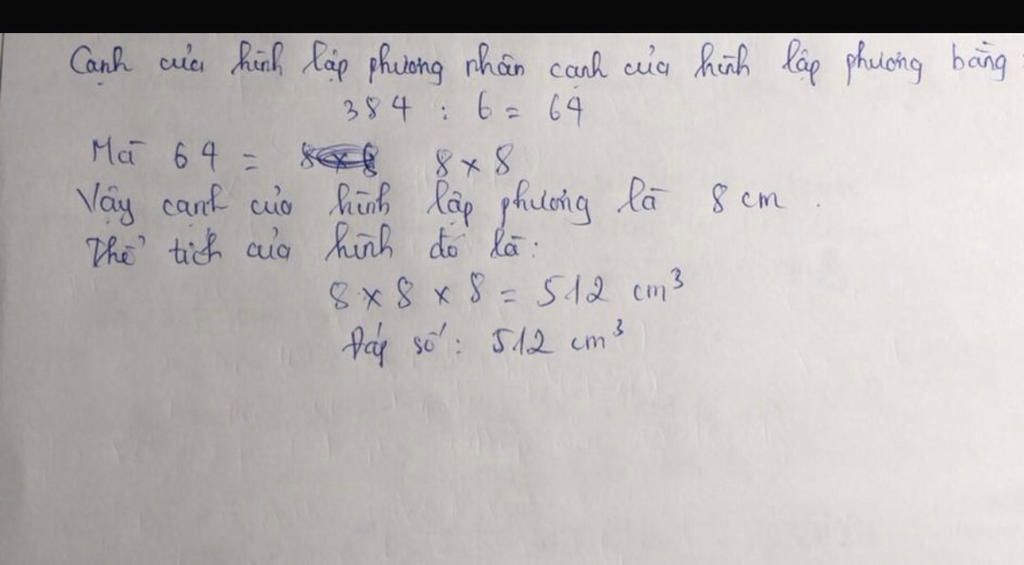 Cạnh của hình lập phương nhân cạnh của hình lập phương bằng:
384 : 6 = 64
Mà 64 = 8 x 8
Vậy cạnh của hình lập phương là 8 cm.
Thể tích của hình đó là:
8 x 8 x 8 = 512 cm³
Đáp số: 512 cm³